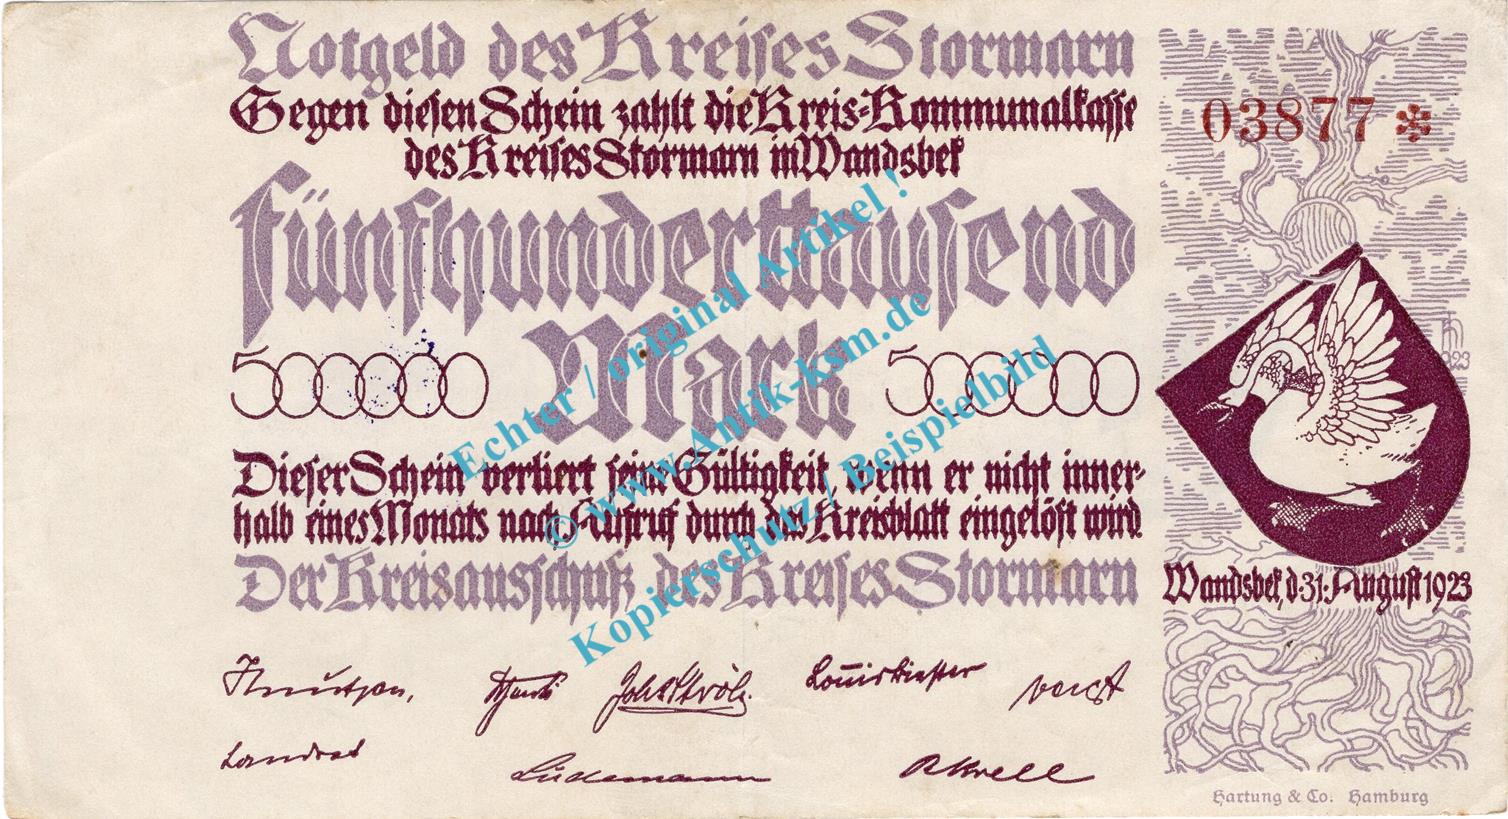 Notgeld des Kreises Stormarn
Gegen diesen Schein zahlt die Kreis-Kommunalkasse
des Kreises Stormarn in Wandsbek
fünfhunderttausend
Mark
500000
500000
Dieser Schein verliert seine Gültigkeit, wenn er nicht inner-
halb eines Monats nach Aufruf durch das Kreisblatt eingelöst wird.
Der Kreisausschuß des Kreises Stormarn
03877 *
Wandsbek, d. 31. August 1923
Knutzen,
Landrat
Lüdemann
Hartung & Co. Hamburg
Echter / original Artikel !
© www.Antik-ksm.de
Kopierschutz / Beispielbild